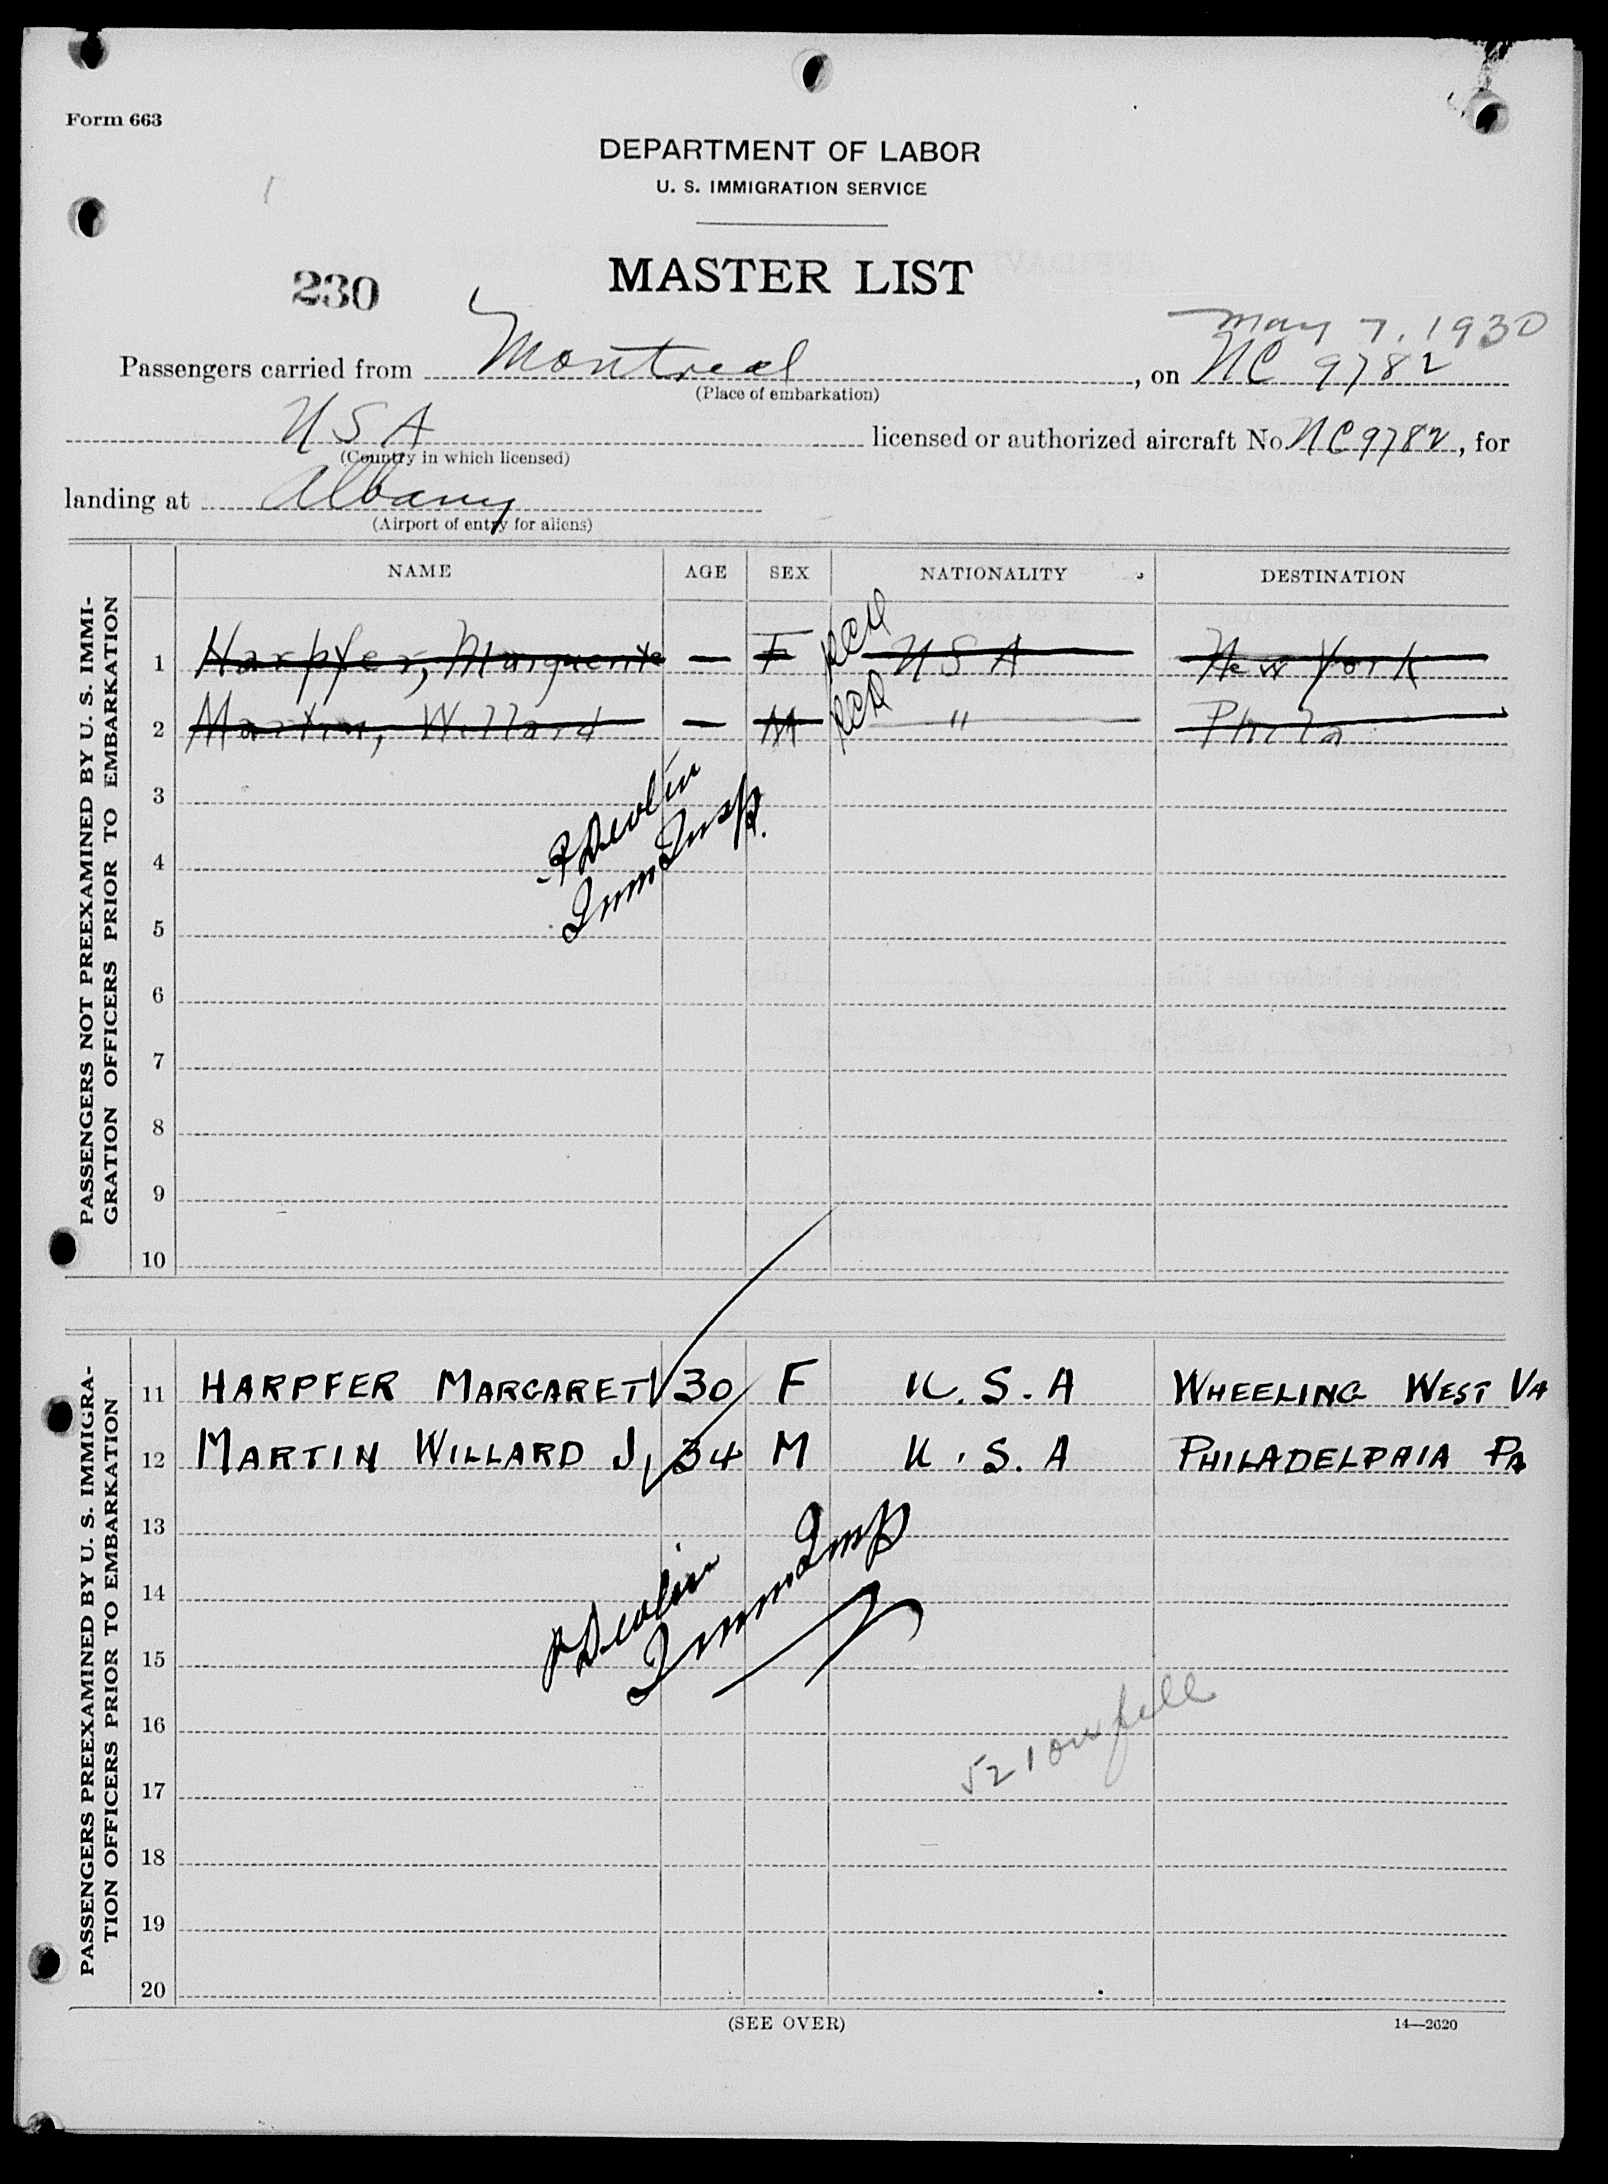 Form 663
DEPARTMENT OF LABOR
U. S. IMMIGRATION SERVICE
230
MASTER LIST
May 7, 1930
Passengers carried from Montreal, on NC 9782
(Place of embarkation)
USA licensed or authorized aircraft No. NC9782, for
(Country in which licensed)
landing at Albany
(Airport of entry for aliens)
NAME AGE SEX NATIONALITY DESTINATION
PASSENGERS NOT PREEXAMINED BY U. S. IMMI-
GRATION OFFICERS PRIOR TO EMBARKATION
1 Harpfer, Marguerite — F USA New York
2 Martin, Willard — M " Phila
3
4
Devlin
Imm Insp.
5
6
7
8
9
10
PASSENGERS PREEXAMINED BY U. S. IMMIGRA-
TION OFFICERS PRIOR TO EMBARKATION
11 HARPFER MARGARET 30 F U.S.A WHEELING WEST VA
12 MARTIN WILLARD J, 34 M U.S.A PHILADELPHIA PA
13
14
Devlin
Imm Insp
15
16
17
18
19
20
(SEE OVER)
14—2620